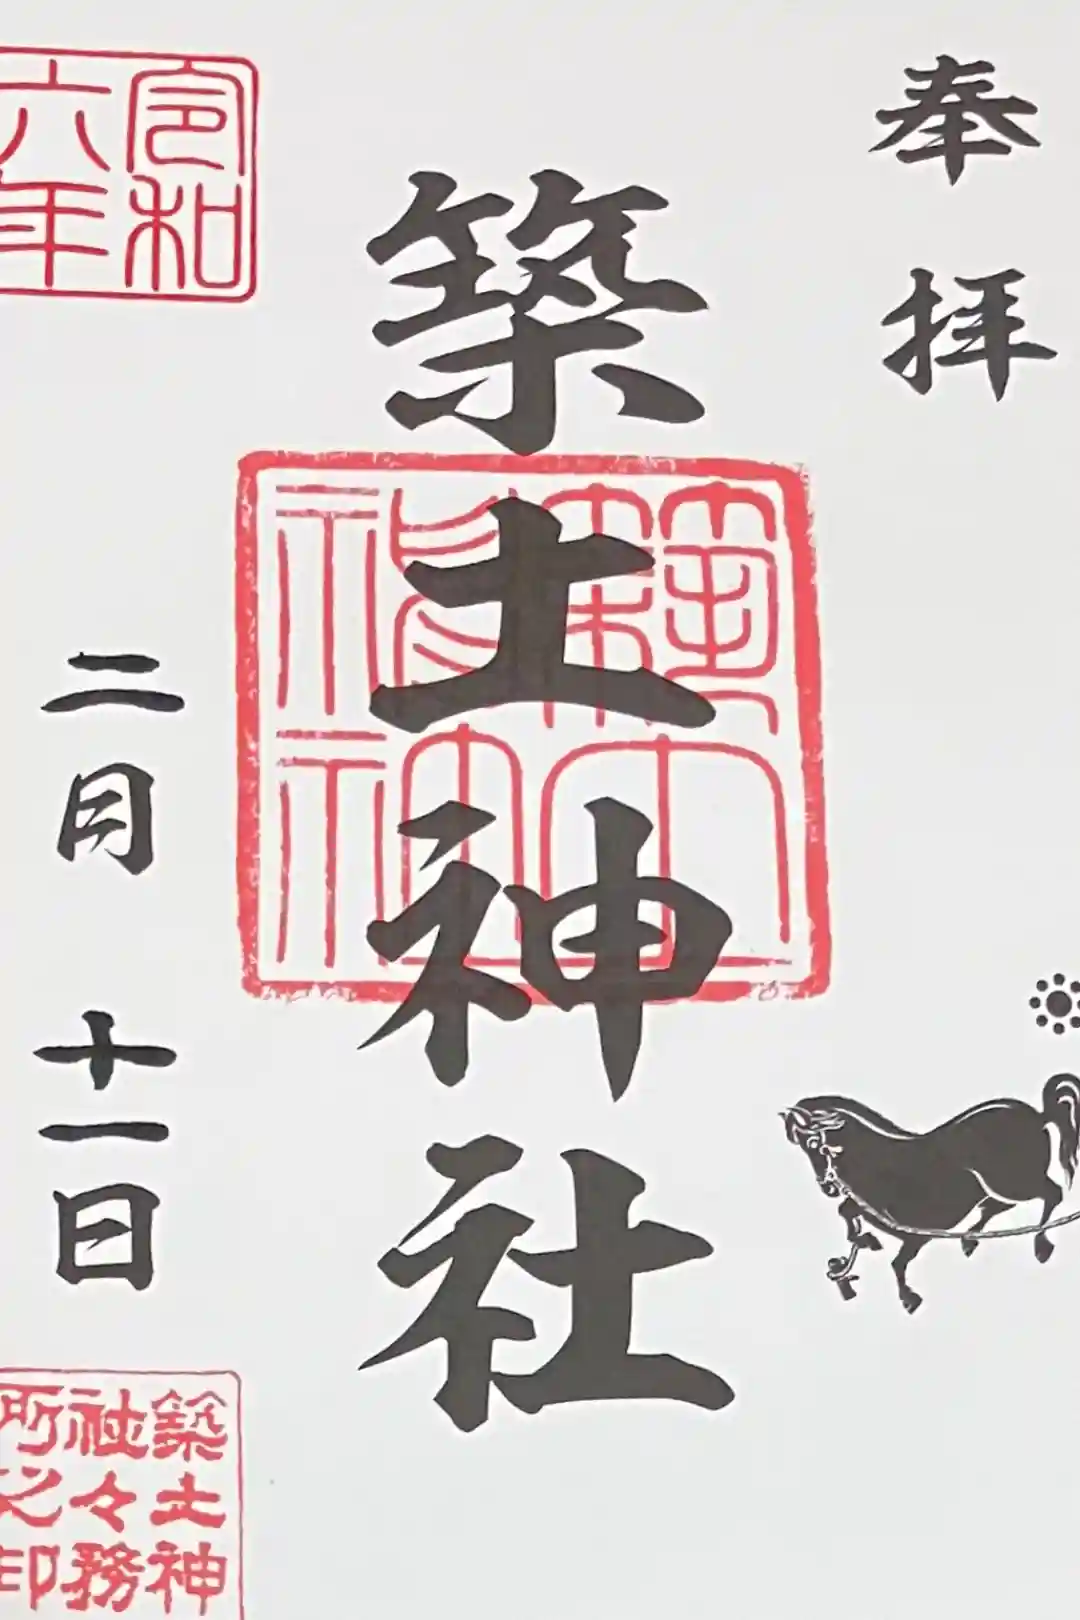 奉拝
築土神社
令和
六年
二月 十一日
築土神
社々務
所之印